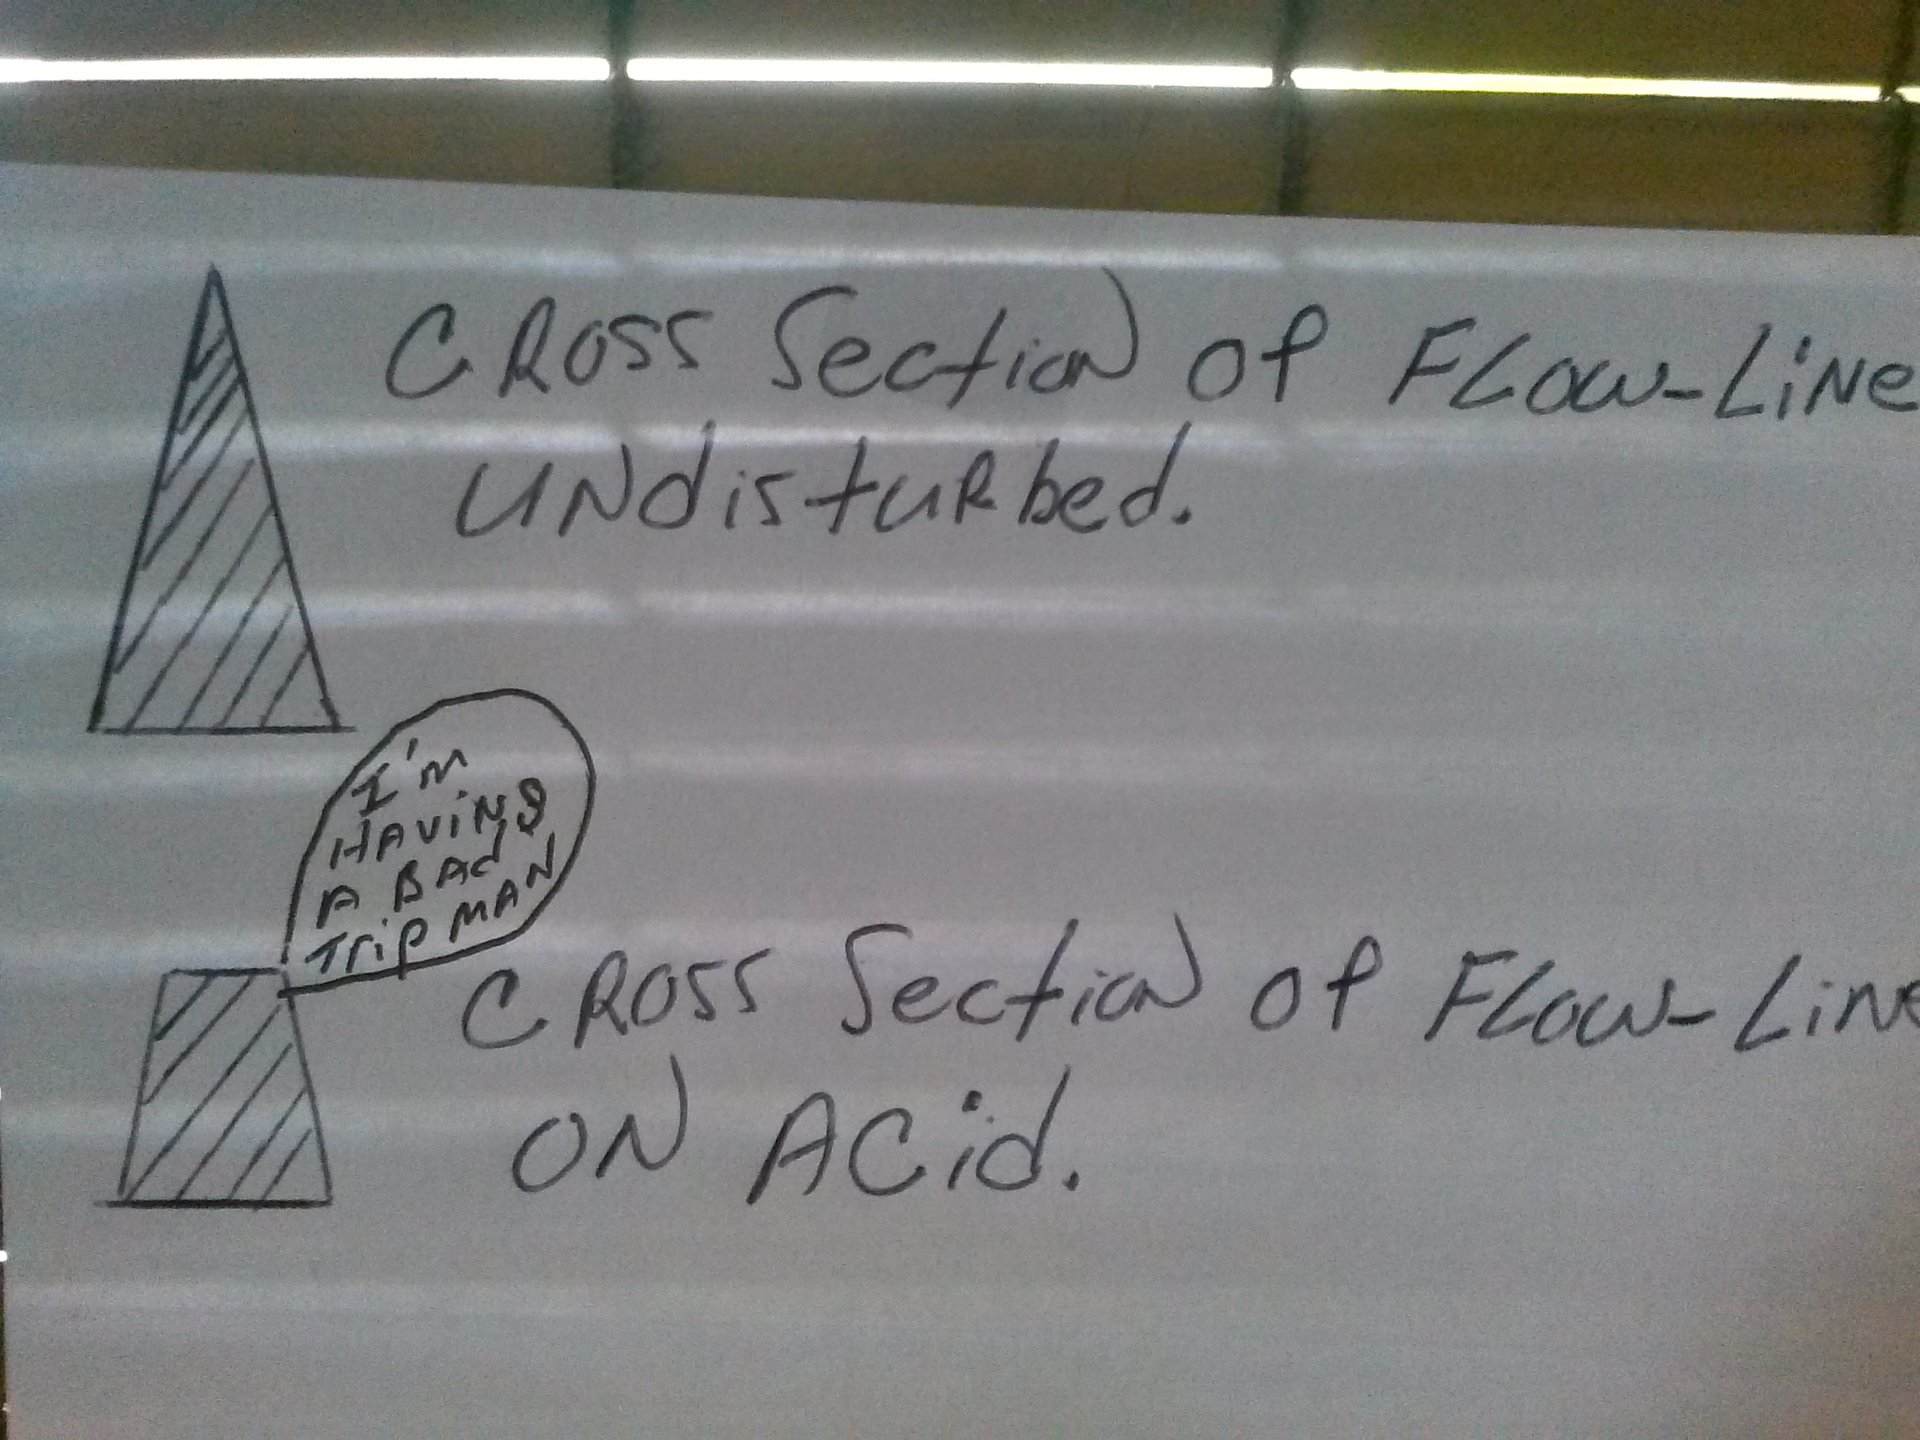 CROSS Section of FLOW-LiNe
UNdisturbed.
I'm
HAViNg
A BAd
Trip MAN
CROSS Section of FLOW-LiNe
ON ACid.